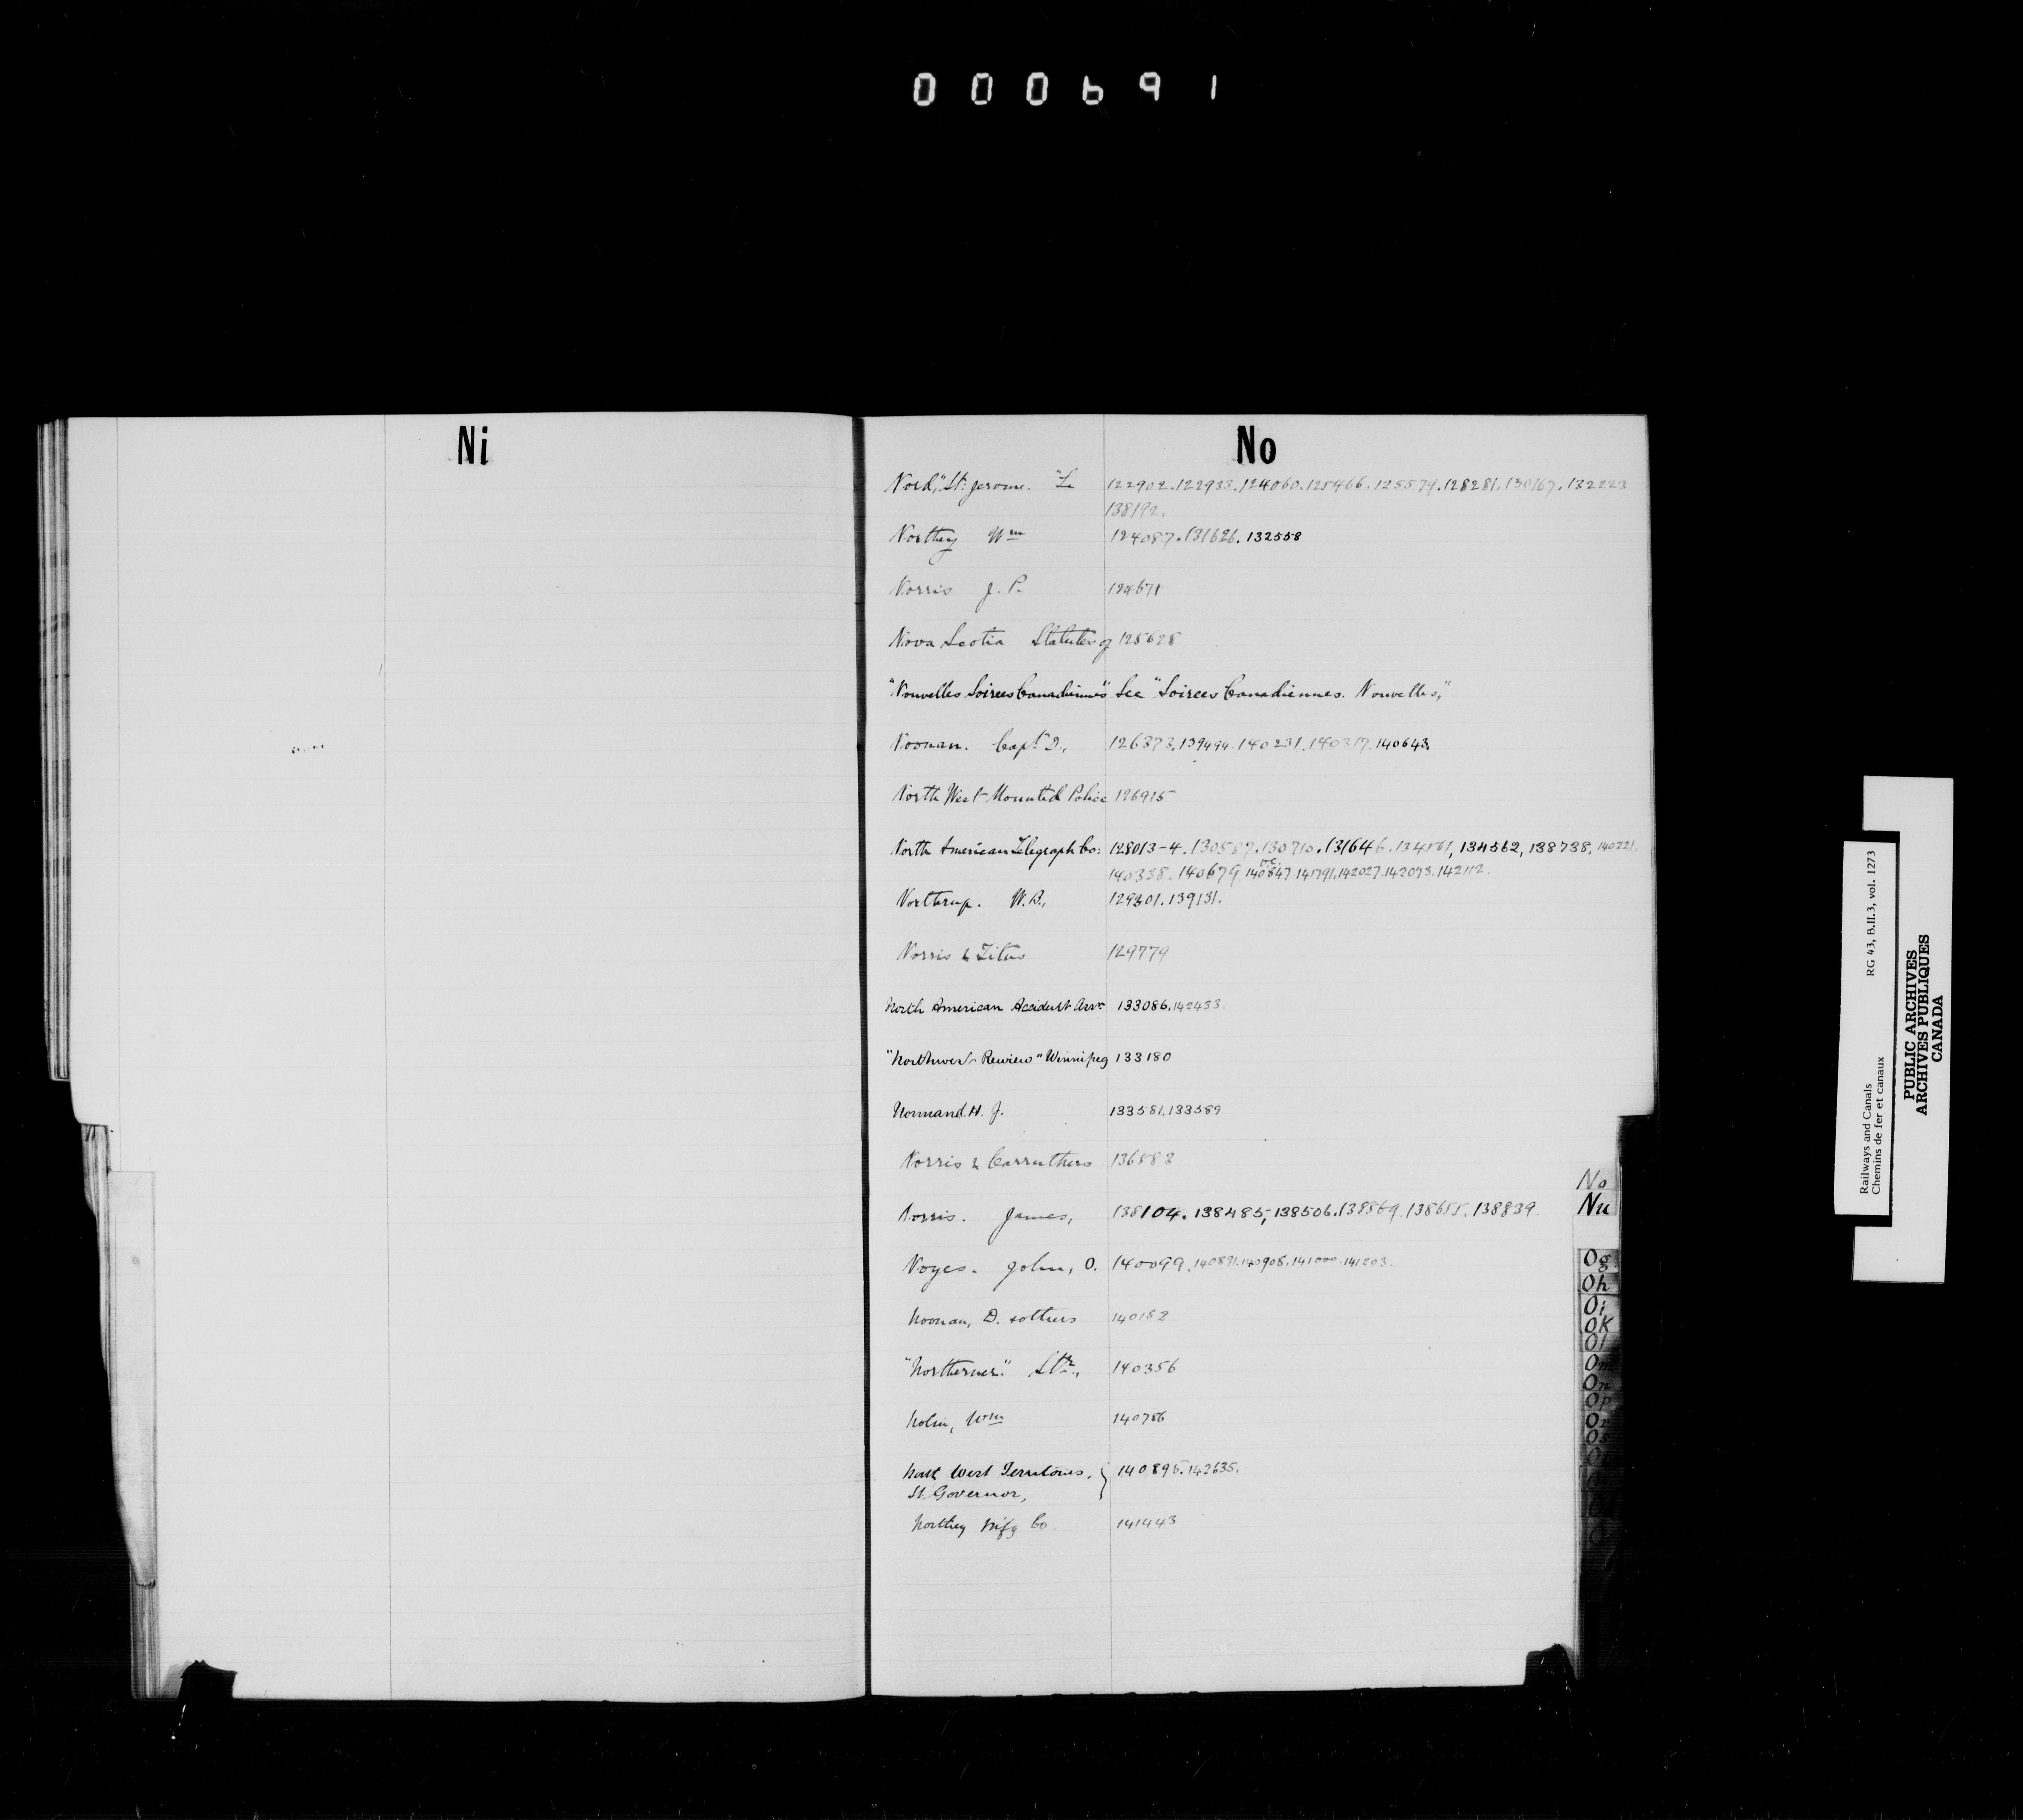 000691
Ni
No
Nord," St. Jerome. "Le 122902.122933.124060.125466.125579.128281.130167.132223
138192.
Northey Wm 124087.131626.132558
Norris J. P. 124671
Nova Scotia Statutes of 125628
"Nouvelles Soirees Canadiennes" See "Soirees Canadiennes. Nouvelles,"
Noonan. Capt. D., 126373.139494.140231.140317.140643.
North West Mounted Police 126915
North American Telegraph Co: 128013-4.130587.130710.131646.134561, 134562, 138738, 140221.
140338.140679.140847.141791.142027.142093.142112.
Northrup. W.B., 129301.139131.
Norris & Titus 129779
North American Accident Assn. 133086.142433.
"Northwest Review" Winnipeg 133180
Normand. H. J. 133581.133589
Norris & Carruthers 136583
Norris. James, 138104. 138485, 138506.138569.138655.138839.
Noyes. John, O. 140099.140891.140908.141000.141203.
Noonan, D. & others 140182
"Northerner." Str., 140356
Nolin, Wm 140786
North West Territories, } 140895.142635.
Lt. Governor,
Northey Mfg Co. 141443
No
Nu
Og
Oh
Oi
OK
Ol
Om
On
Op
Or
Os
Railways and Canals RG 43, B.II.3, vol. 1273
Chemins de fer et canaux
PUBLIC ARCHIVES
ARCHIVES PUBLIQUES
CANADA